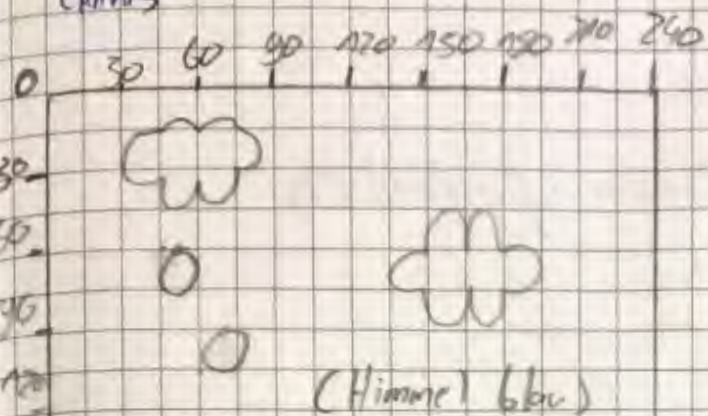 30 60 90 120 150 180 210 240
0
30
60
90
120
(Himmel blau)